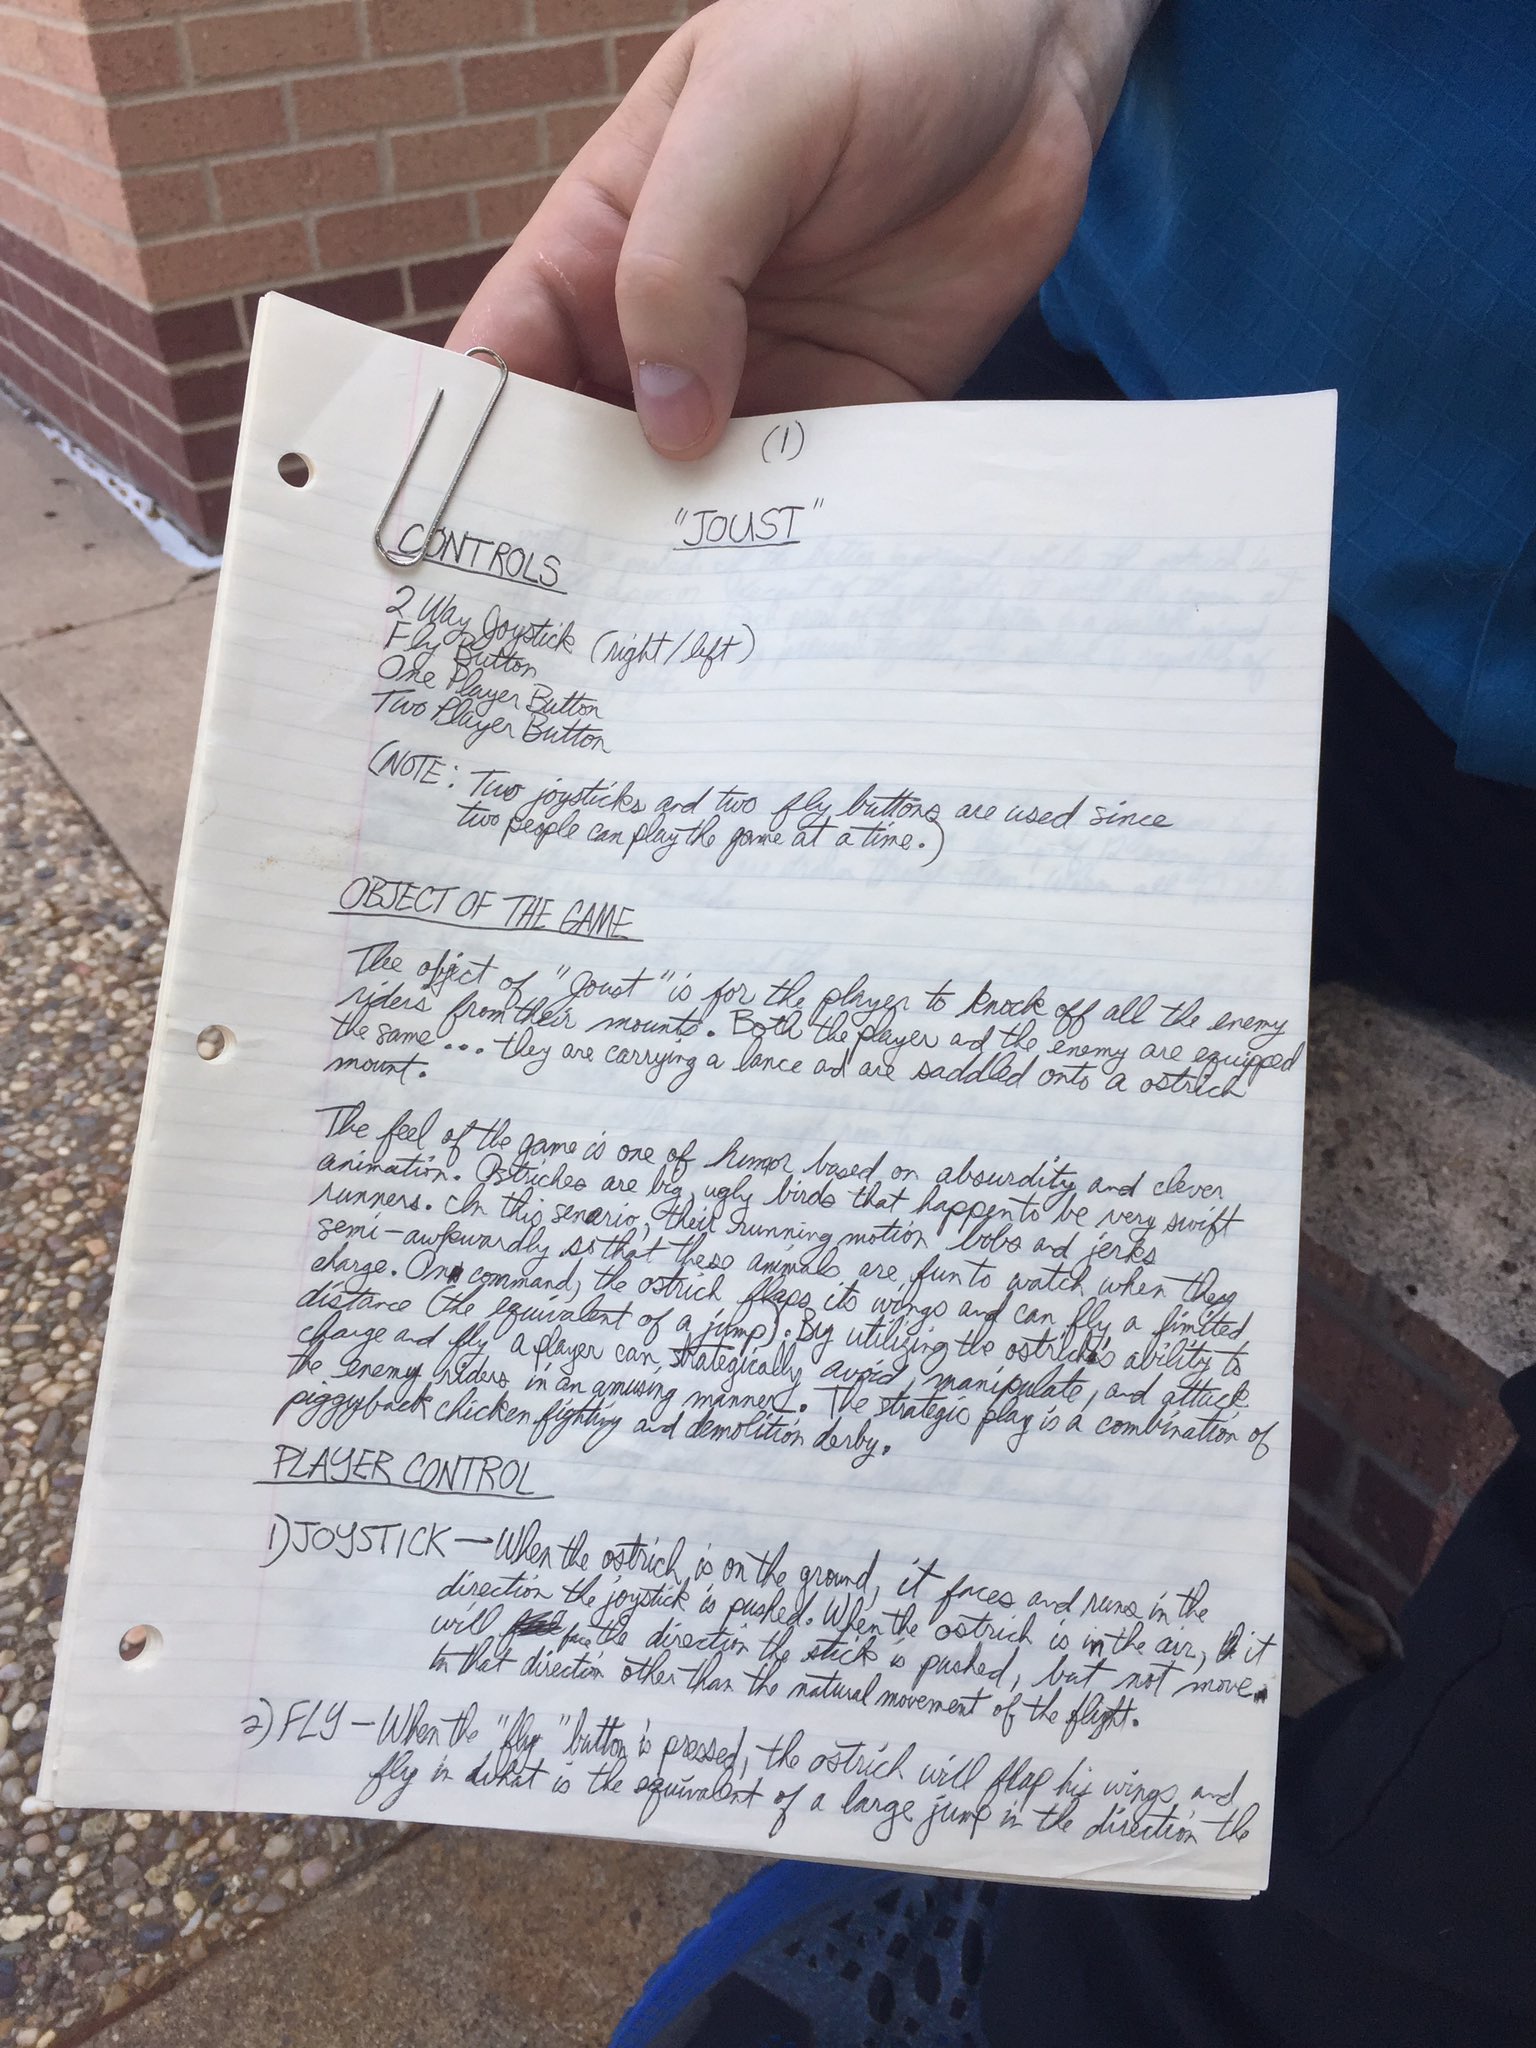 (1)
"JOUST"
CONTROLS
2 Way Joystick (right/left)
Fly Button
One Player Button
Two Player Button
(NOTE: Two joysticks and two fly buttons are used since
two people can play the game at a time.)
OBJECT OF THE GAME
The object of "Joust" is for the player to knock off all the enemy
riders from their mounts. Both the player and the enemy are equipped
the same... they are carrying a lance and are saddled onto a ostrich
mount.
The feel of the game is one of humor based on absurdity and clever
animation. Ostriches are big, ugly birds that happen to be very swift
runners. In this senario, their running motion bobs and jerks
semi-awkwardly so that these animals are fun to watch when they
charge. On command, the ostrich flaps its wings and can fly a limited
distance (the equivalent of a jump). By utilizing the ostrich's ability to
charge and fly a player can strategically avoid, manipulate, and attack
the enemy riders in an amusing manner. The strategic play is a combination of
piggyback chicken fighting and demolition derby.
PLAYER CONTROL
1) JOYSTICK — When the ostrich is on the ground, it faces and runs in the
direction the joystick is pushed. When the ostrich is in the air, it
will face the direction the stick is pushed, but not move
in that direction other than the natural movement of the flight.
2) FLY — When the "fly" button is pressed, the ostrich will flap his wings and
fly in what is the equivalent of a large jump in the direction the